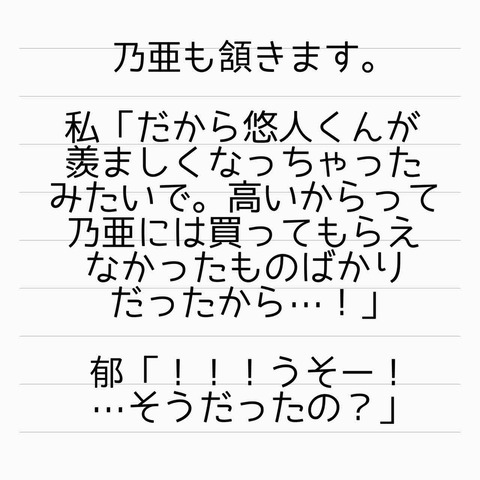 乃亜も頷きます。
私「だから悠人くんが
羨ましくなっちゃった
みたいで。高いからって
乃亜には買ってもらえ
なかったものばかり
だったから…！」
郁「！！！うそー！
…そうだったの？」